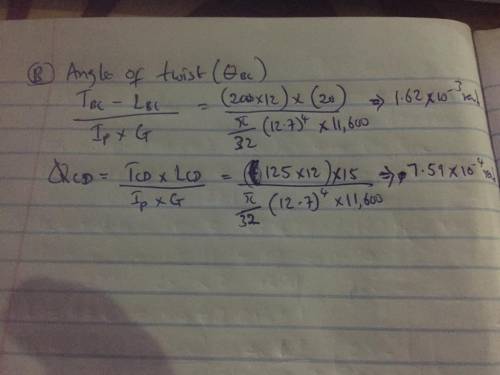 (B) Angle of twist (θBC)
TBC - LBC / Ip × G = (200×12) × (20) / π/32 (12.7)⁴ × 11,600 ⇒ 1.62 × 10⁻³ rad
θCD = TCD × LCD / Ip × G = (125×12) × 15 / π/32 (12.7)⁴ × 11,600 ⇒ 7.59 × 10⁻⁴ rad